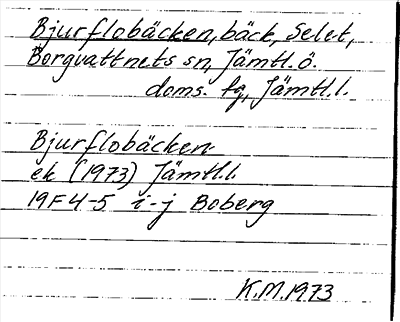 Bjurflobäcken, bäck, Selet,
Borgvattnets sn, Jämtl. ö.
doms. fg, Jämtl. l.
Bjurflobäcken
ek (1973) Jämtl. l.
19F4-5 i-j Boberg
K.M. 1973